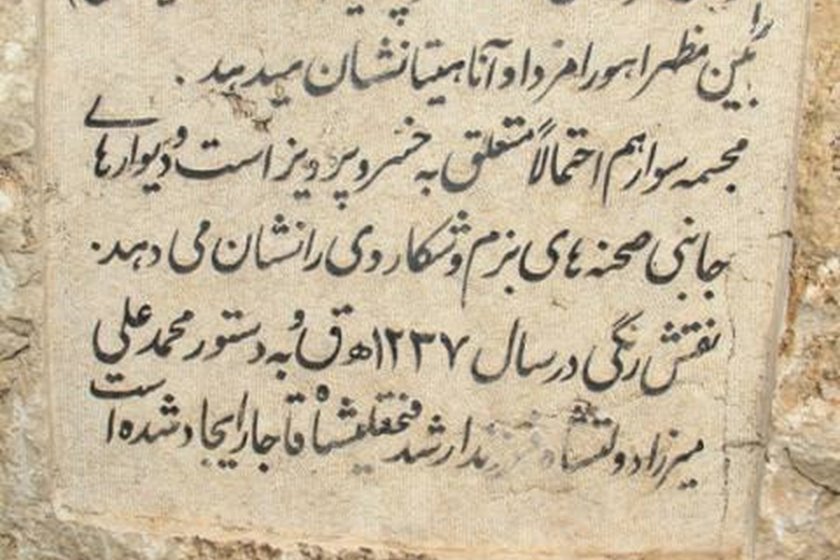 بین مظهر اهورامزدا و آناهیتا نشان میدهد .
مجسمه سوار هم احتمالاً متعلق به خسرو پرویز است و دیوارهای
جانبی صحنه های بزم و شکار وی را نشان می دهد.
نقش رنگی در سال ۱۲۳۷ ه ق و به دستور محمد علی
میرزا دولتشاه فرزند ارشد فتحعلیشاه قاجار ایجاد شده است